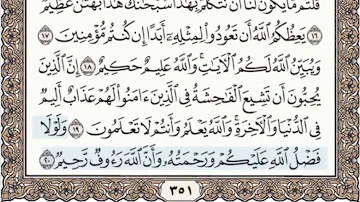 قُلْتُم مَّا يَكُونُ لَنَآ أَن نَّتَكَلَّمَ بِهَٰذَا سُبْحَٰنَكَ هَٰذَا بُهْتَٰنٌ عَظِيمٌ
١٦ يَعِظُكُمُ ٱللَّهُ أَن تَعُودُوا۟ لِمِثْلِهِۦٓ أَبَدًا إِن كُنتُم مُّؤْمِنِينَ ١٧
وَيُبَيِّنُ ٱللَّهُ لَكُمُ ٱلْـَٔايَٰتِ ۚ وَٱللَّهُ عَلِيمٌ حَكِيمٌ ١٨ إِنَّ ٱلَّذِينَ
يُحِبُّونَ أَن تَشِيعَ ٱلْفَٰحِشَةُ فِى ٱلَّذِينَ ءَامَنُوا۟ لَهُمْ عَذَابٌ أَلِيمٌ
فِى ٱلدُّنْيَا وَٱلْـَٔاخِرَةِ ۚ وَٱللَّهُ يَعْلَمُ وَأَنتُمْ لَا تَعْلَمُونَ ١٩ وَلَوْلَا
فَضْلُ ٱللَّهِ عَلَيْكُمْ وَرَحْمَتُهُۥ وَأَنَّ ٱللَّهَ رَءُوفٌ رَّحِيمٌ ٢٠
٣٥١